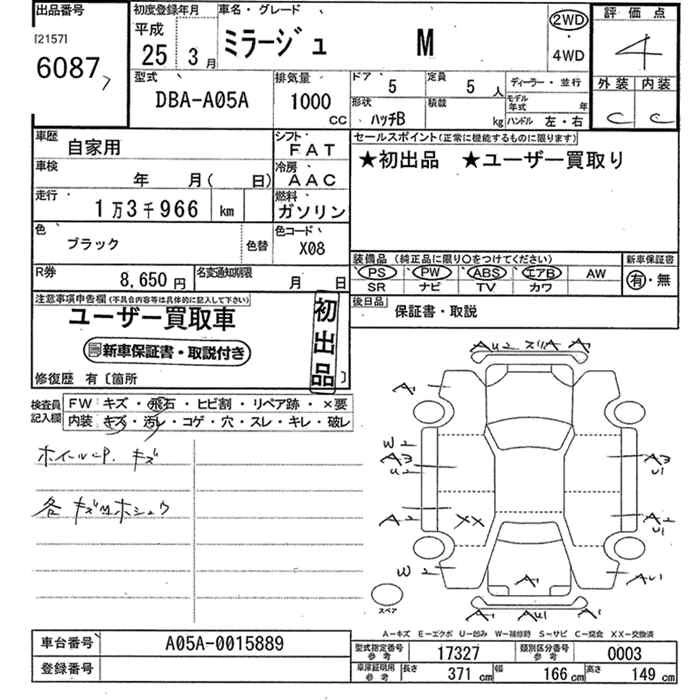 出品番号
[2157]
6087
初度登録年月
平成
25年 3月
車名・グレード
ミラージュ M
2WD
・
4WD
評価点
4
外装 内装
C C
型式
DBA-A05A
排気量
1000
CC
ドア 5
定員 5人
ディーラー・並行
形状 ハッチB
積載 kg
モデル年式 年
ハンドル 左・右
車歴 自家用
シフト FAT
車検 年 月( 日)
冷房 AAC
走行 1万3千966 km
燃料 ガソリン
色 ブラック
色替
色コード X08
R券 8,650円
名変通知期限 月 日
セールスポイント(正常に機能するものに限ります)
★初出品 ★ユーザー買取り
装備品 (純正品に限り○をつけてください)
新車保証書
PS PW ABS エアB AW
有・無
SR ナビ TV カワ
後日品 保証書・取説
注意事項申告欄(不具合内容等は具体的に記入して下さい)
ユーザー買取車
新車保証書・取説付き
初出品
修復歴 有〔箇所 〕
検査員記入欄
FW キズ・飛石・ヒビ割・リペア跡・×要
内装 キズ・汚レ・コゲ・穴・スレ・キレ・破レ
ホイールCP. キズ
各 キズ凹ホシュウ
A U2 ズリA A
A1
W2
A3
U2
A3
U1
A2
XX
A2
U1
W2
A1
AU1
A1 AU1 A1
スペア
A-キズ E-エクボ U-凹み W-補修跡 S-サビ C-腐食 XX-交換済
車台番号 A05A-0015889
登録番号
型式指定番号 参考 17327
類別区分番号 参考 0003
車庫証明用 参考
長さ 371cm
幅 166cm
高さ 149cm